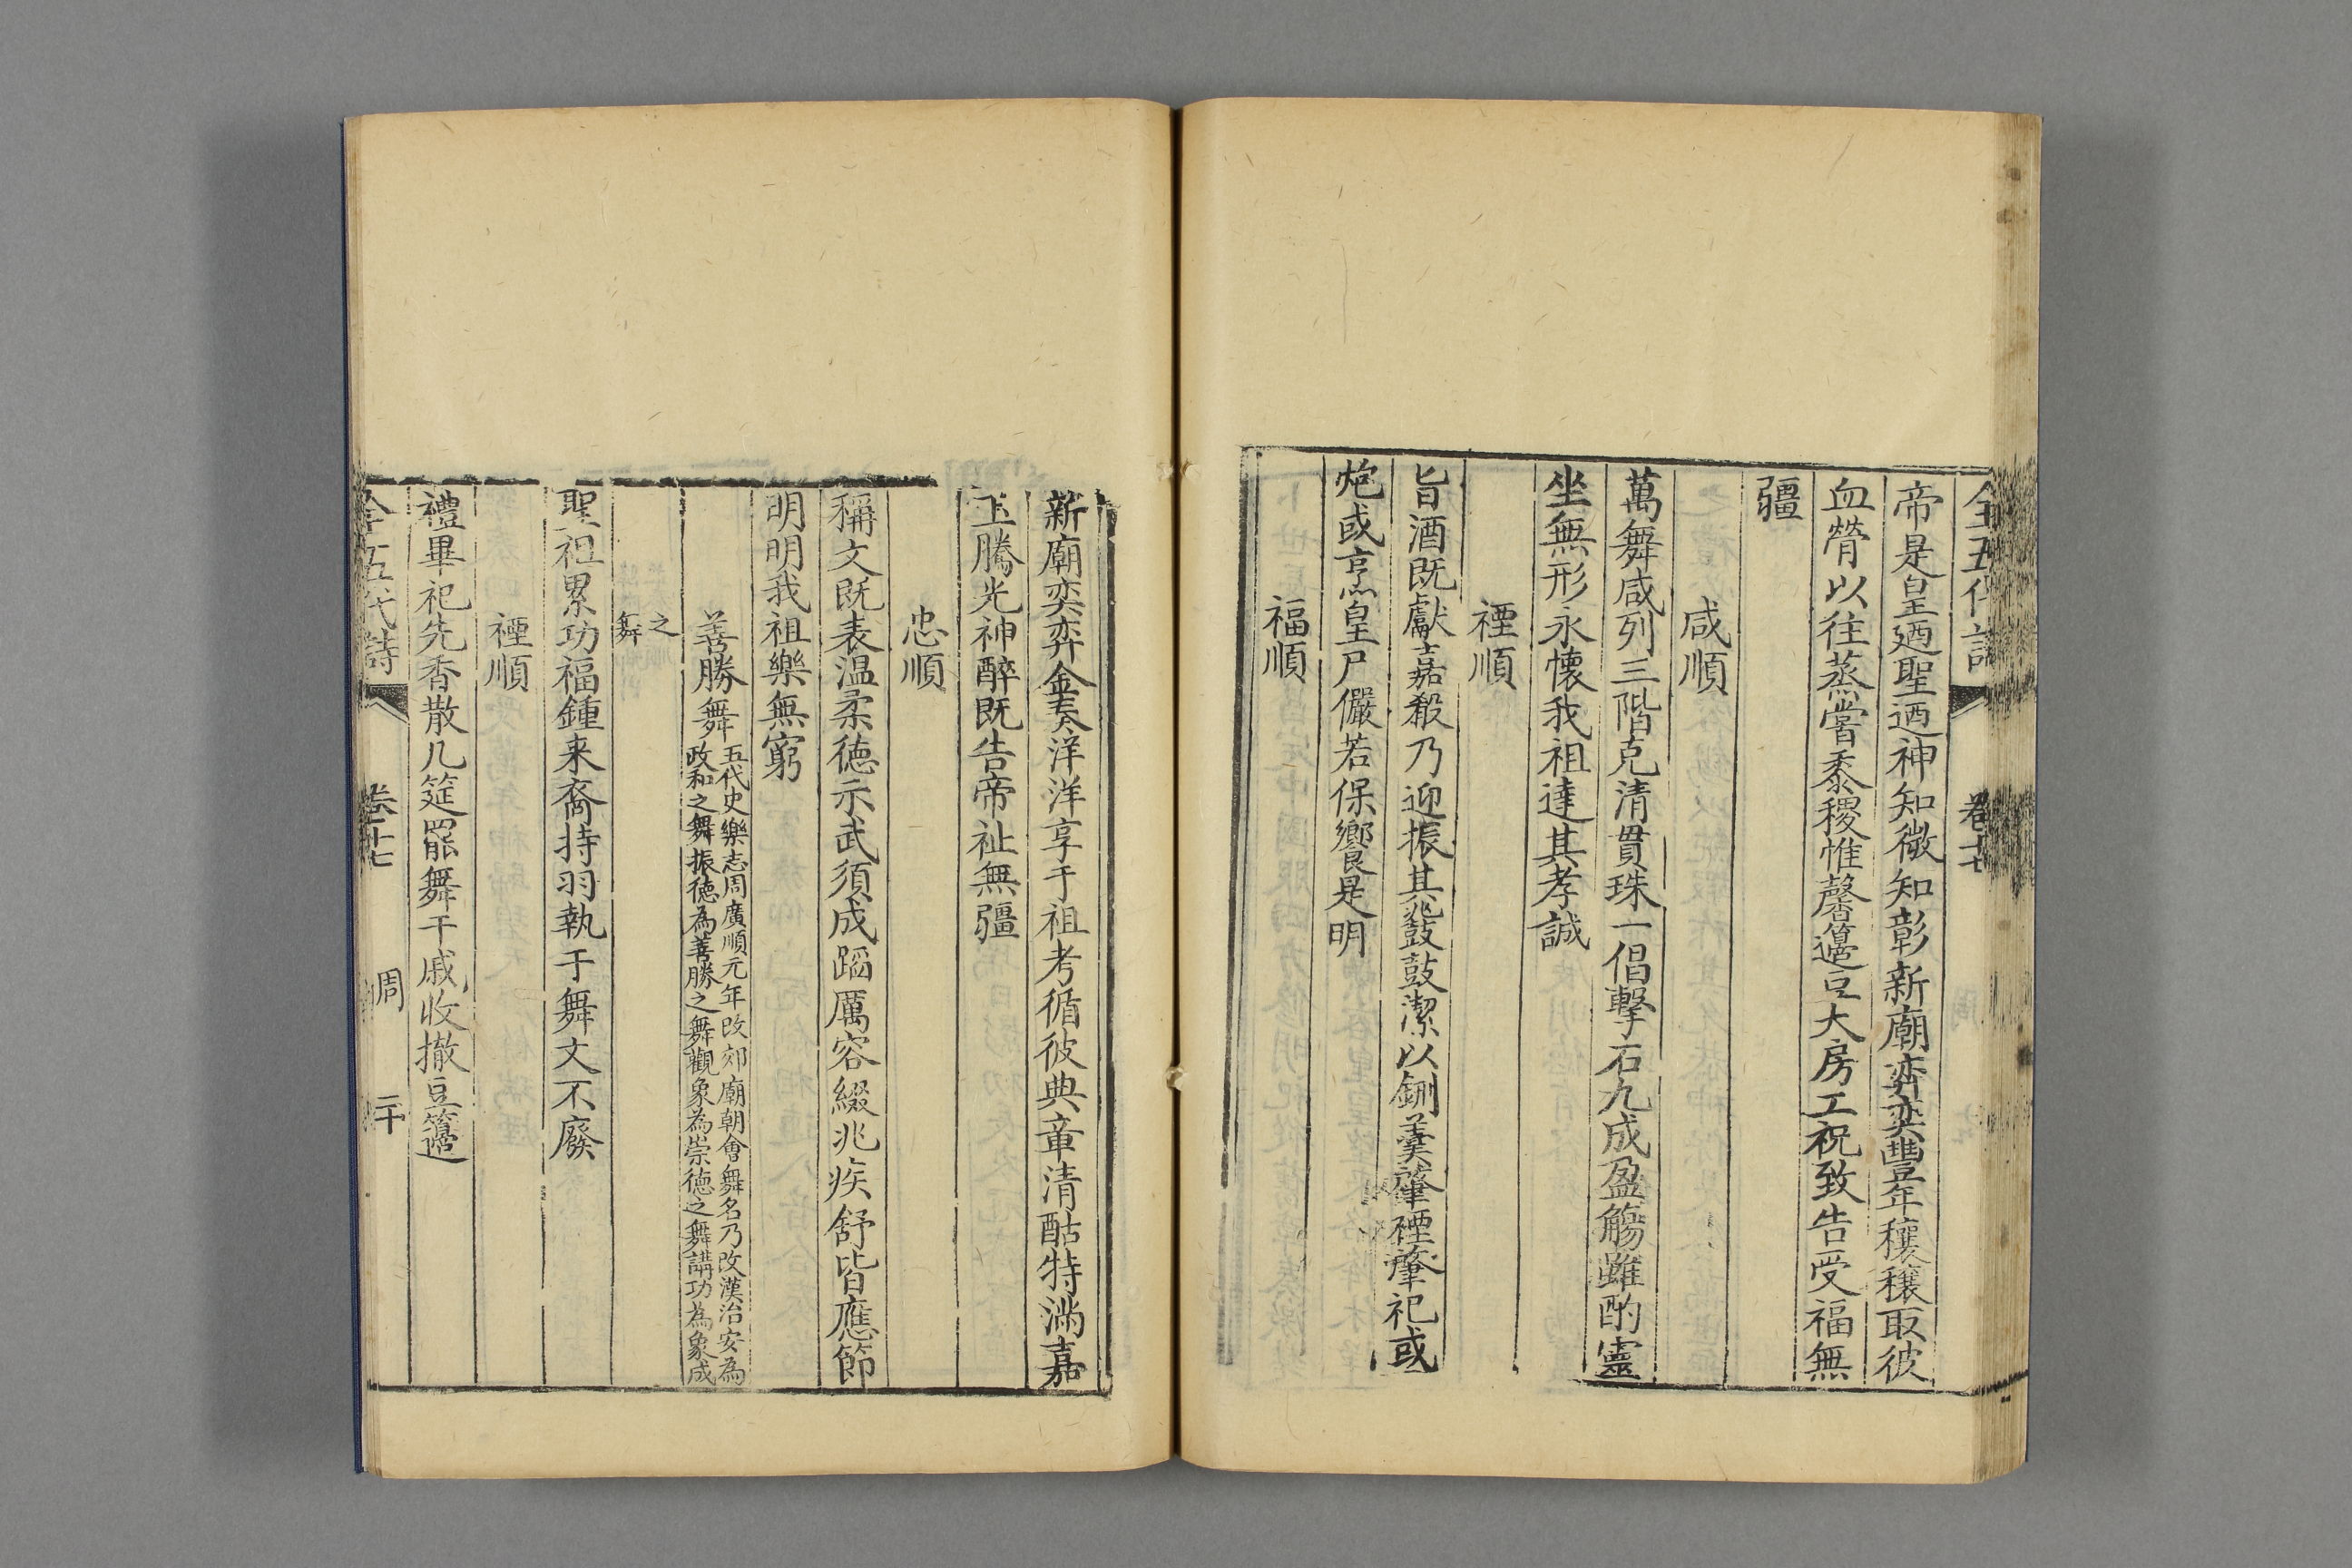 全五代詩
卷十七
帝是皇廼聖迺神知微知彰新廟奕奕豐年穰穰取彼
血膋以往蒸嘗黍稷惟馨籩豆大房工祝致告受福無
疆
咸順
萬舞咸列三階克清貫珠一倡擊石九成盈觴雖酌靈
坐無形永懷我祖達其孝誠
禋順
旨酒既獻嘉殽乃迎振其鼗鼓潔以鉶羹肇禋肇祀或
炮或烹皇尸儼若保饗是明
福順
新廟奕奕金奏洋洋享于祖考循彼典章清酤特滿嘉
玉騰光神醉既告帝祉無疆
忠順
稱文既表溫柔德示武須成蹈厲容綴兆疾舒皆應節
明明我祖樂無窮
善勝舞
五代史樂志周廣順元年改郊廟朝會舞名乃改漢治安為
政和之舞振德為善勝之舞觀象為崇德之舞講功為象成
之
舞
聖祖累功福鍾来裔持羽執干舞文不廢
禋順
禮畢祀先香散几筵罷舞干戚收撤豆籩
全五代詩
卷十七
周
二十